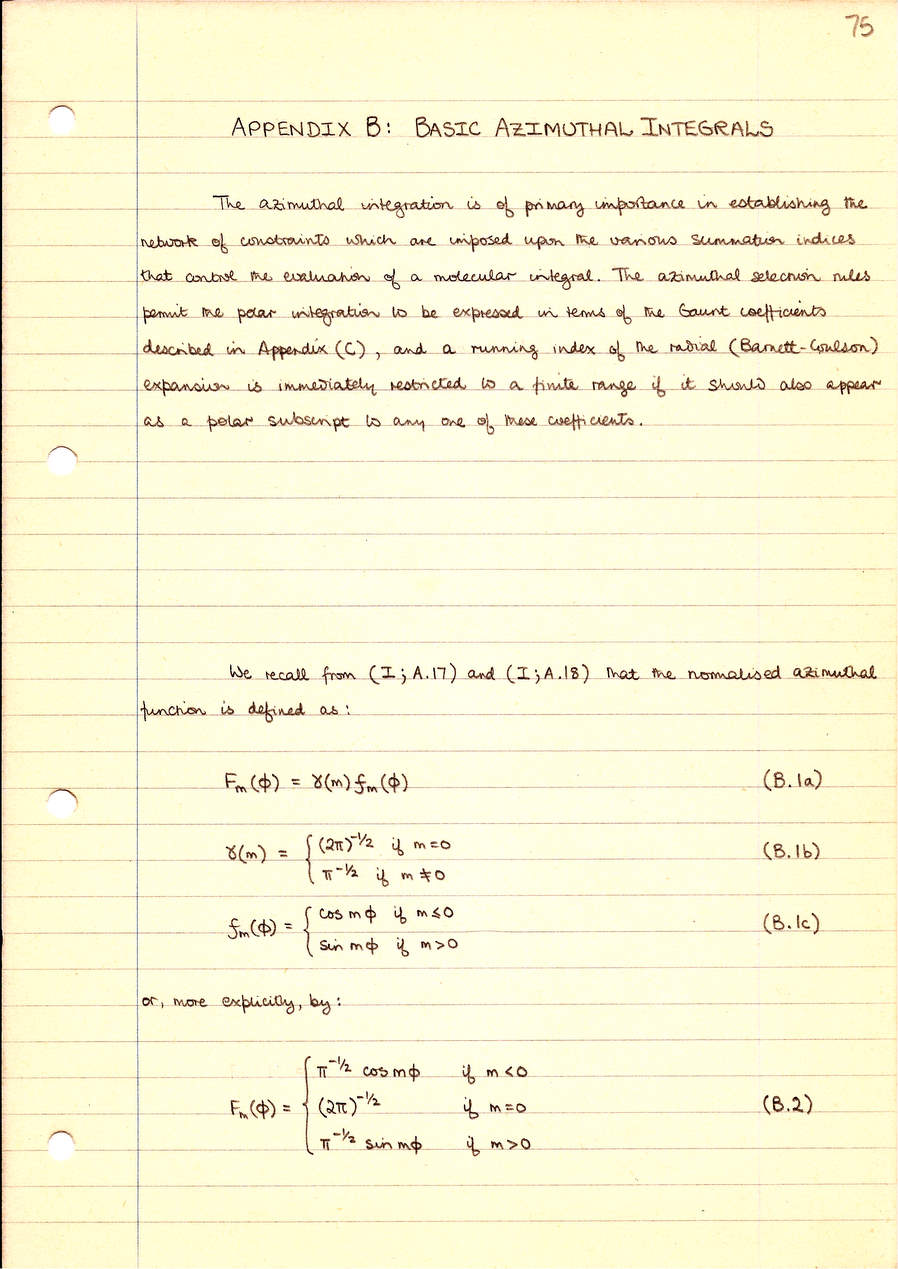 75
APPENDIX B: BASIC AZIMUTHAL INTEGRALS
The azimuthal integration is of primary importance in establishing the
network of constraints which are imposed upon the various summation indices
that control the evaluation of a molecular integral. The azimuthal selection rules
permit the polar integration to be expressed in terms of the Gaunt coefficients
described in Appendix (C), and a running index of the radial (Barnett-Coulson)
expansion is immediately restricted to a finite range if it should also appear
as a polar subscript to any one of these coefficients.
We recall from (I; A.17) and (I; A.18) that the normalised azimuthal
function is defined as:
Fₘ(ϕ) = γ(m) fₘ(ϕ) (B.1a)
γ(m) = { (2π)^-1/2 if m=0 (B.1b)
π^-1/2 if m≠0
fₘ(ϕ) = { cos mϕ if m≤0 (B.1c)
sin mϕ if m>0
or, more explicitly, by:
π^-1/2 cos mϕ if m<0
Fₘ(ϕ) = { (2π)^-1/2 if m=0 (B.2)
π^-1/2 sin mϕ if m>0